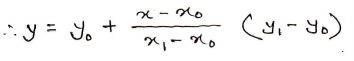 ∴ y = y₀ + \frac{x - x₀}{x₁ - x₀} (y₁ - y₀)